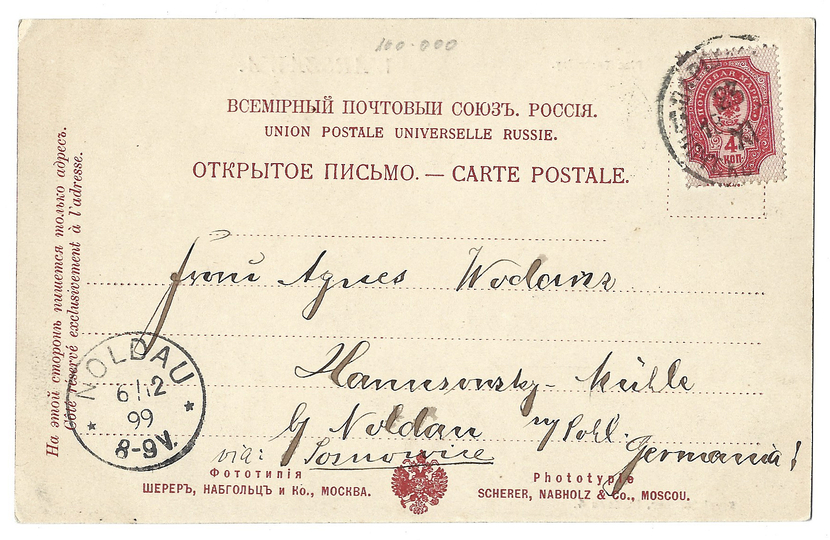 100-000
ВСЕМІРНЫЙ ПОЧТОВЫЙ СОЮЗЪ. РОССІЯ.
UNION POSTALE UNIVERSELLE RUSSIE.
ОТКРЫТОЕ ПИСЬМО. — CARTE POSTALE.
ПОЧТОВАЯ МАРКА
4
КОП
На этой сторонѣ пишется только адресъ.
Côté réservé exclusivement à l'adresse.
Agnes Wodarz
Mühle
b/ Noldau
Germania!
via: Sosnowice
NOLDAU
6/12
99
8-9V.
Фототипія
ШЕРЕРЪ, НАБГОЛЬЦЪ и Ко., МОСКВА.
Phototypie
SCHERER, NABHOLZ & Co., MOSCOU.